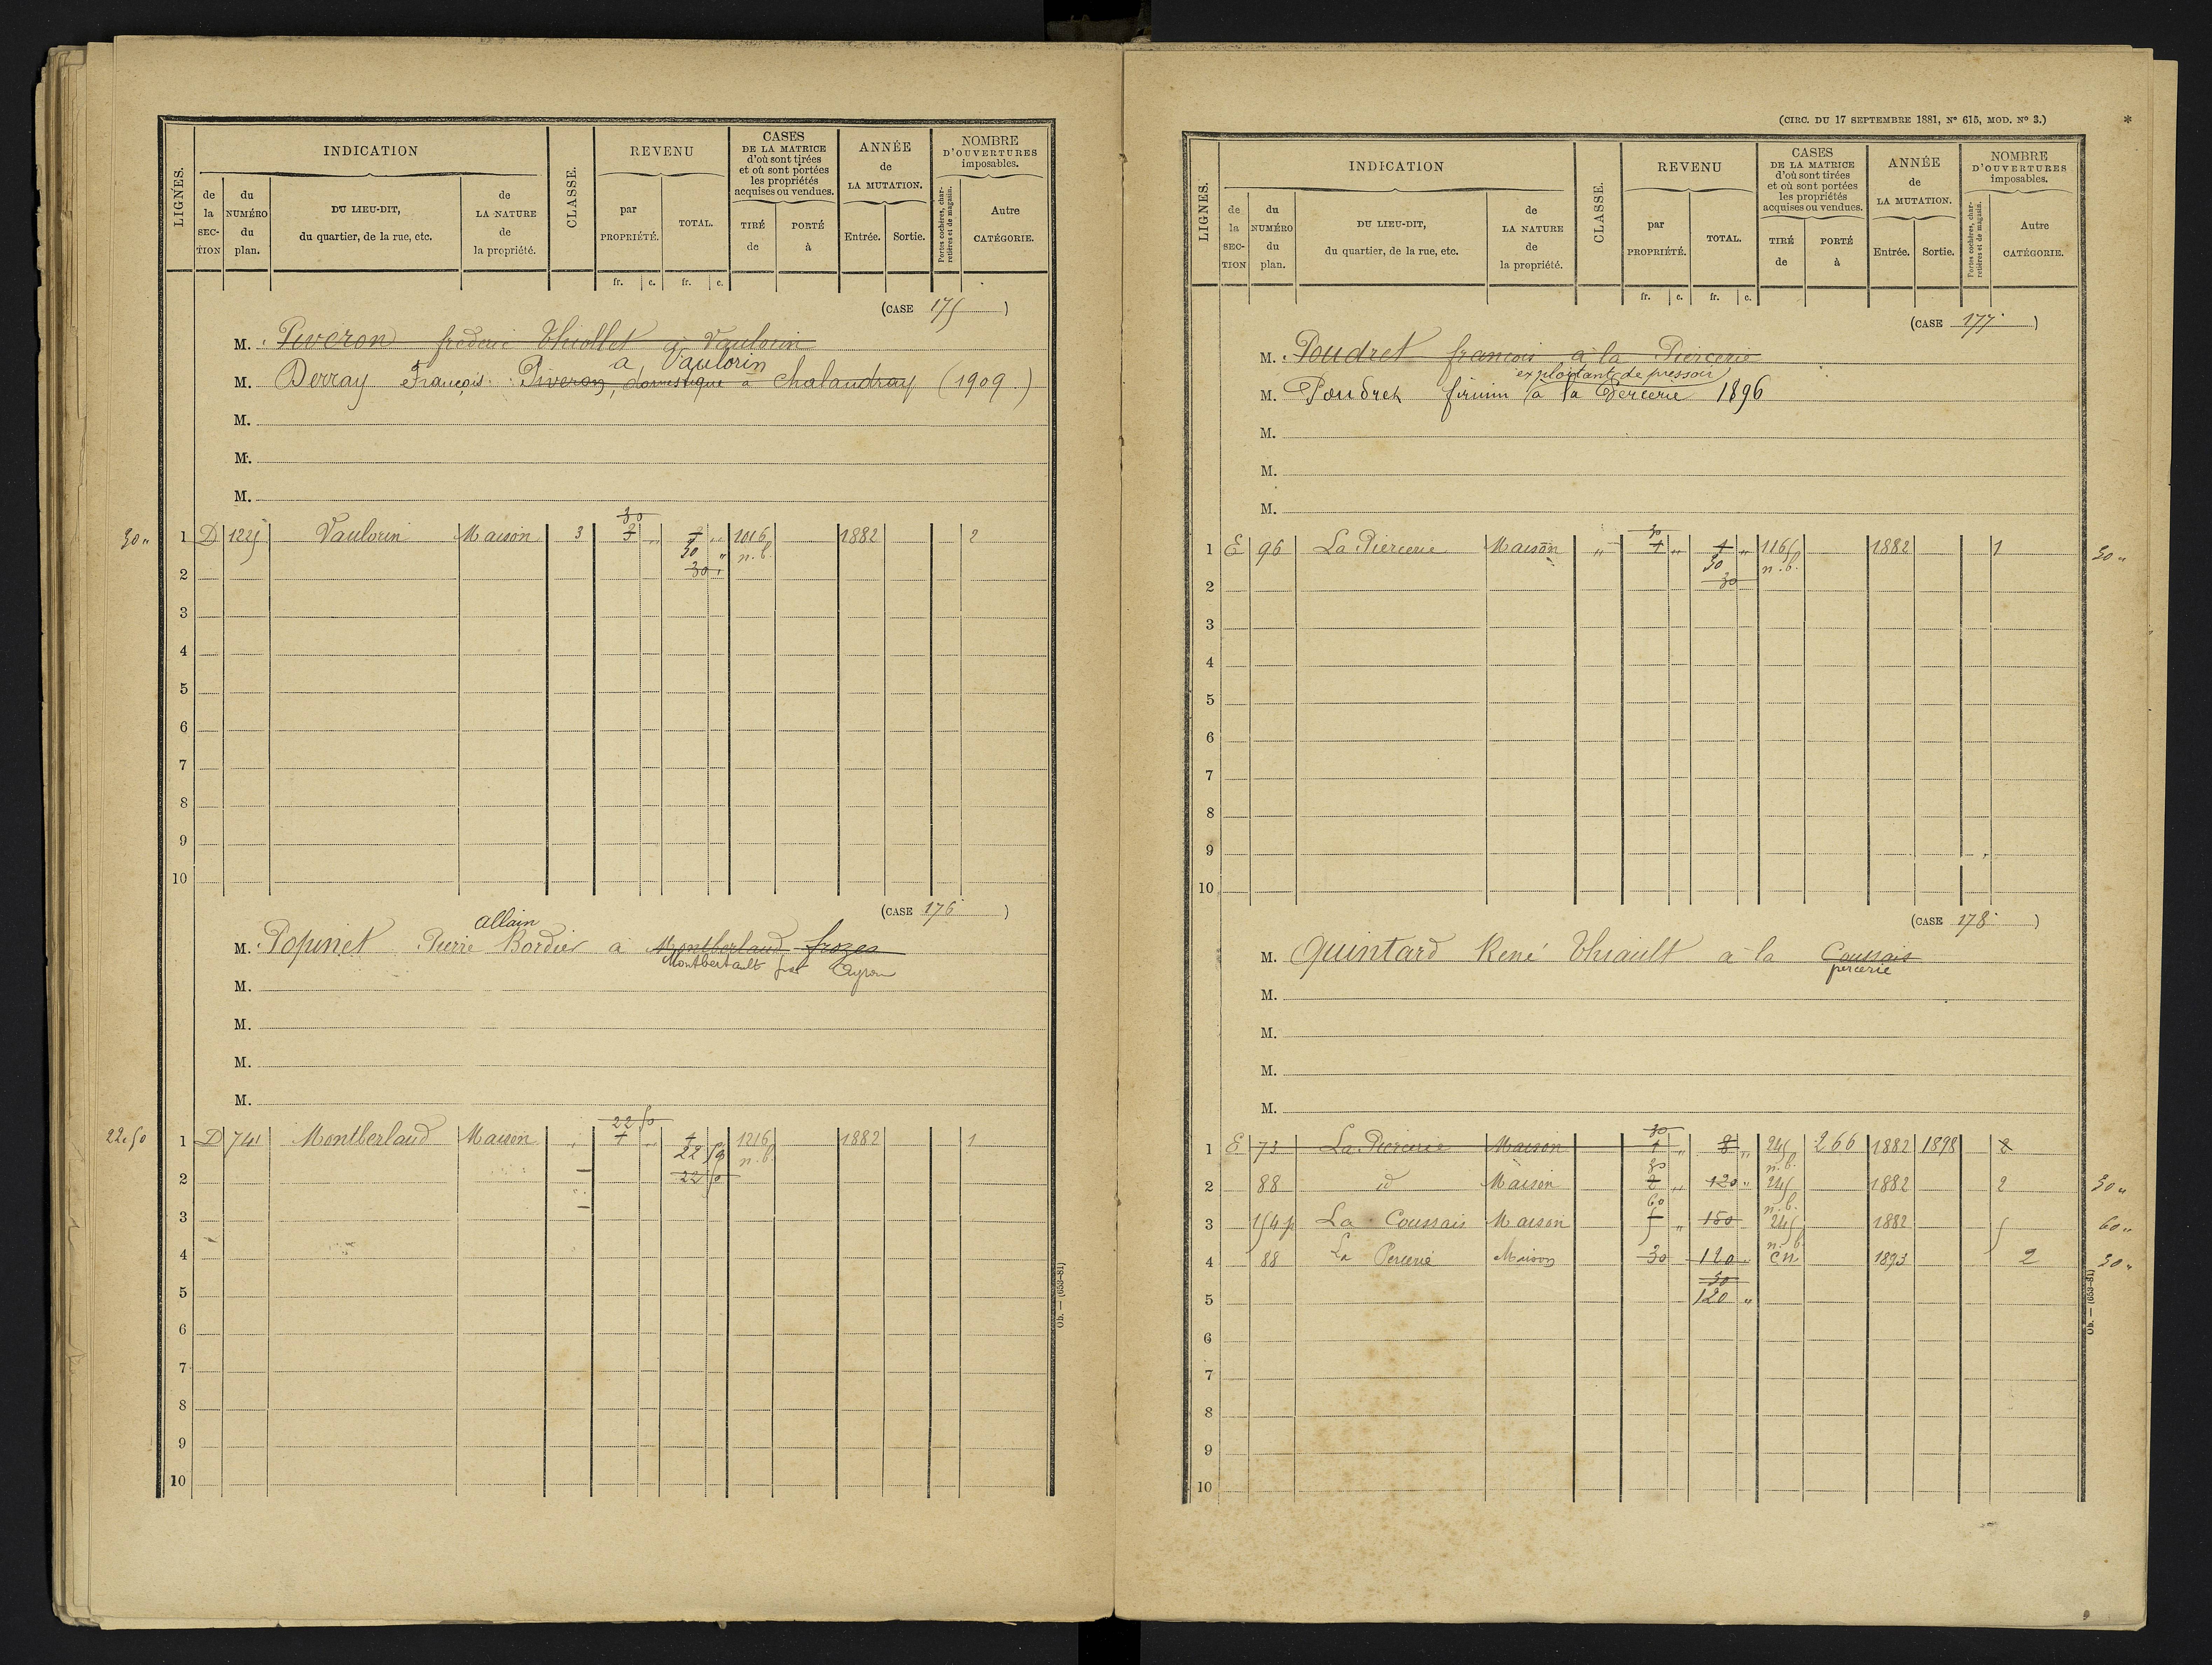 LIGNES.
INDICATION
de la SECTION
du NUMÉRO du plan.
DU LIEU-DIT, du quartier, de la rue, etc.
de LA NATURE de la propriété.
CLASSE.
REVENU
par PROPRIÉTÉ.
TOTAL.
fr. c. fr. c.
CASES DE LA MATRICE d'où sont tirées et où sont portées les propriétés acquises ou vendues.
TIRÉ de
PORTÉ à
ANNÉE de LA MUTATION.
Entrée. Sortie.
NOMBRE D'OUVERTURES imposables.
Portes cochères, charretières et de magasin.
Autre CATÉGORIE.
(CASE 175)
M. Piveron frederic Thiollet à Vaulorin
à Vaulorin
M. Derray François Piveron, domestique à Chalandray (1909.)
M.
M.
M.
30
30 " 1 D 1225 Vaulorin Maison 3 3 " 3 " 1016 1882 2
30 " n.b.
2 30 "
3
4
5
6
7
8
9
10
(CASE 176)
allain
M. Popinet Pierre Bordier à Montberlaud frozes
Montbertault Ayron
M.
M.
M.
M.
22 50
22.50 1 D 741 Montberlaud Maison " 1 " 1 1216 1882 1
22 50 n.b.
2 22 50
3
4
5
6
7
8
9
10
Ob. — (653-81)
(CIRC. DU 17 SEPTEMBRE 1881, N° 615, MOD. N° 3.)
*
LIGNES.
INDICATION
de la SECTION
du NUMÉRO du plan.
DU LIEU-DIT, du quartier, de la rue, etc.
de LA NATURE de la propriété.
CLASSE.
REVENU
par PROPRIÉTÉ.
TOTAL.
fr. c. fr. c.
CASES DE LA MATRICE d'où sont tirées et où sont portées les propriétés acquises ou vendues.
TIRÉ de
PORTÉ à
ANNÉE de LA MUTATION.
Entrée. Sortie.
NOMBRE D'OUVERTURES imposables.
Portes cochères, charretières et de magasin.
Autre CATÉGORIE.
(CASE 177)
M. Poudret francois à la Piercerie
exploitant de pressoir
M. Poudret firmin à la Percerie 1896
M.
M.
M.
30
1 E 96 La Piercerie Maison " 1 " 1 " 1165 1882 1 30 "
30 n.b.
2 30
3
4
5
6
7
8
9
10
(CASE 178)
M. Quintard René Thiault à la Coussais
percerie
M.
M.
M.
M.
30
1 E 73 La Piercerie Maison 1 " 8 " 245 266 1882 1898 2
30 n.b.
2 88 id Maison 2 " 120 " 245 1882 2 30 "
60 n.b.
3 154p La Coussais Maison 5 " 150 245 1882 5 60 "
n.b.
4 88 La Percerie Maison 30 120 " CN 1893 2 30 "
30
5 120 "
6
7
8
9
10
Ob. — (653-81)